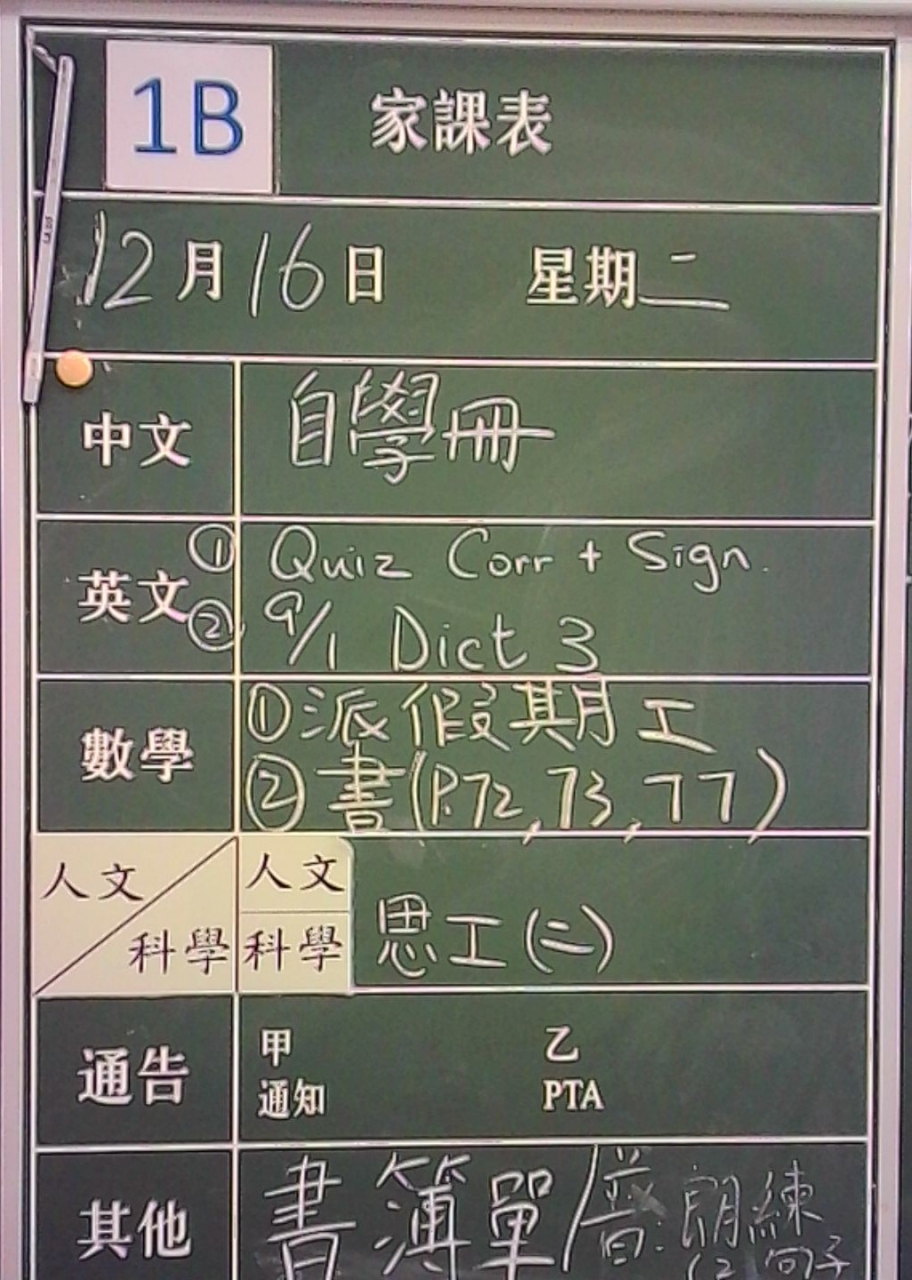 1B 家課表
12月16日 星期二
中文 自學冊
英文 ① Quiz Corr + Sign.
② 9/1 Dict 3
數學 ①派假期工
②書(P.72,73,77)
人文 人文
科學 科學 思工(二)
通告 甲 乙
通知 PTA
其他 書簿單/普:朗練
(2句子